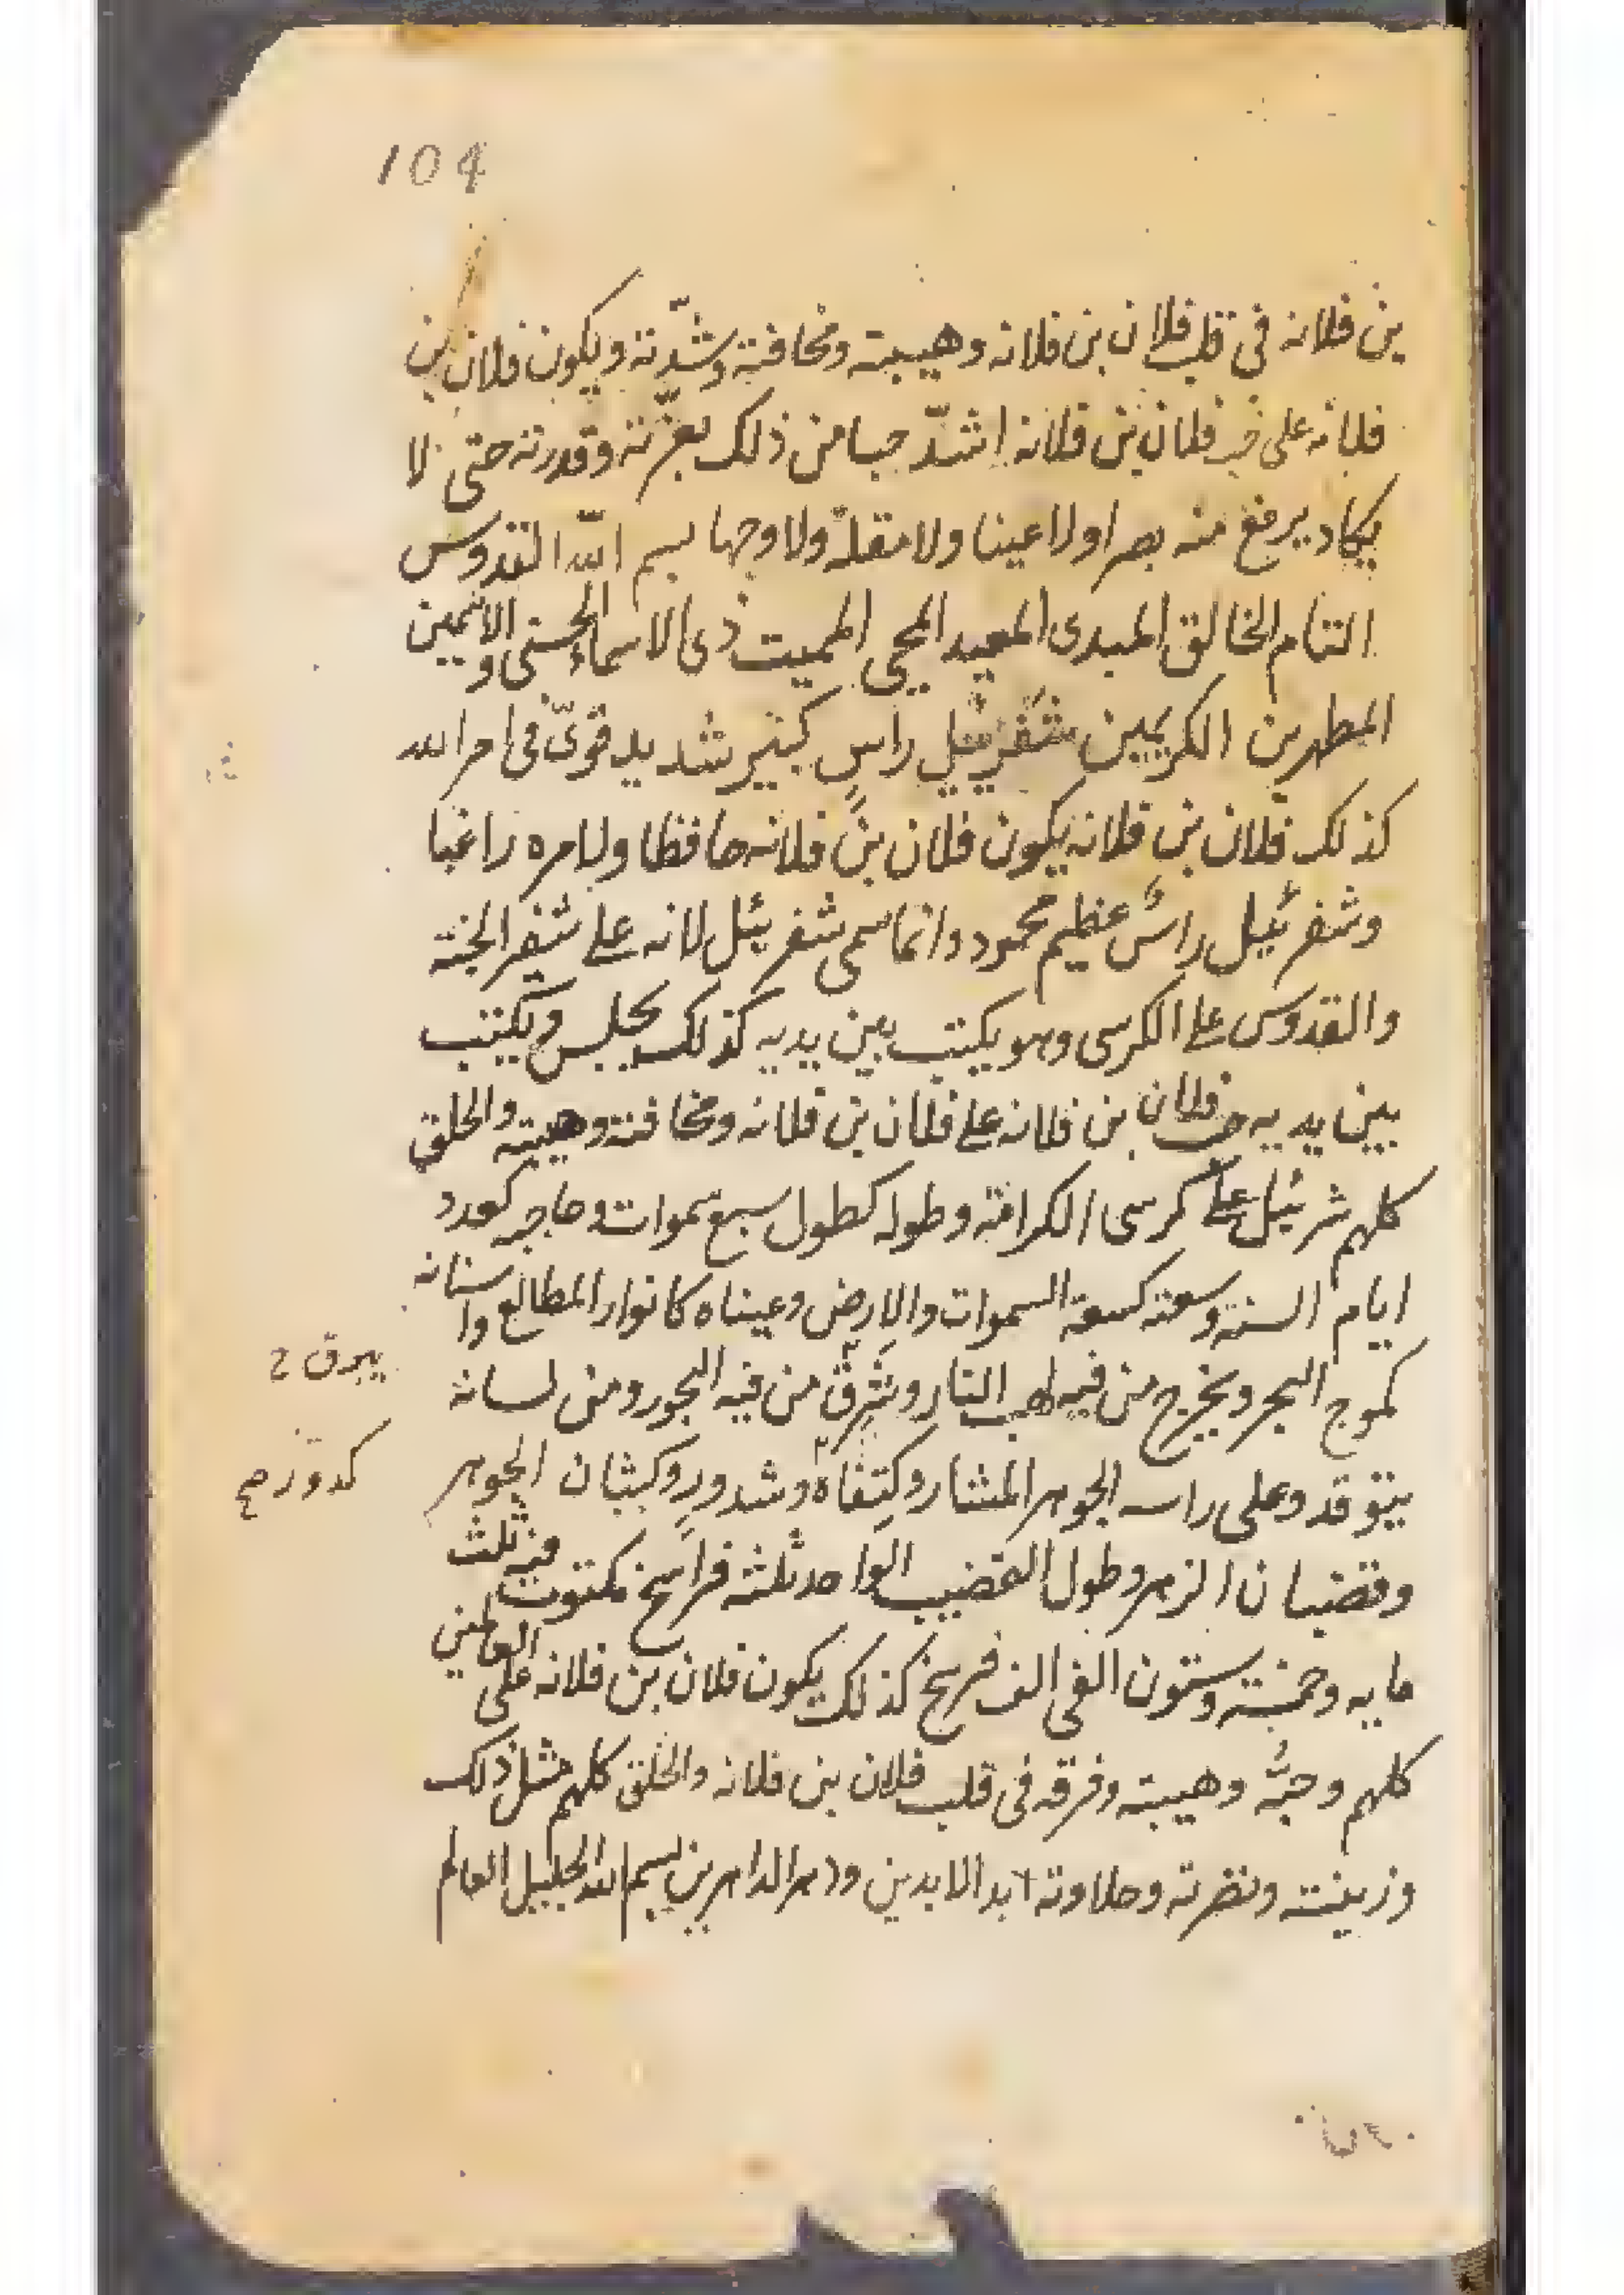 104
بن فلانه فى قلب فلان بن فلانه وهيبته ومخافته وشدّته ويكون فلان بن
فلانه على حب فلان بن فلانه اشدّ حبا من ذلك بعزّته وقدرته حتى لا
يكاد يرفع منه بصرا ولا عينا ولا مقلة ولا وجها بسم اللّه القدوس
التام الخالق المبدى المعيد المحيى المميت ذى الاسماء الحسنى والاسمين
المطهرين الكريمين شفريئيل راس كبير شديد قوىّ فى امر الله
كذلك فلان بن فلانه يكون فلان بن فلانه حافظا ولامره راغبا
وشفرئيل راسٌ عظيم محمود وانما سمى شفريئل لانه على شفر الجنة
والقدوس على الكرسى وهو يكتب بين يديه كذلك يجلس ويكتب
بين يديه حب فلان بن فلانه على فلان بن فلانه ومخافته وهيبته والخلق
كلهم شرئيل على كرسى الكرامة وطوله كطول سبع سموات وحاجبه كعدد
ايام السنة وسعته كسعة السموات والارض وعيناه كانوار المطالع واسنانه
كموج البحر ويخرج من فيه لهب النار ويشرق من فيه البحور ومن لسانه
يبرق ح
يتوقد وعلى راسه الجوهر المشار وكتفاه وشدور وكبثان الجوهر
كدوز صح
وقضبان الزمر وطول القضيب الواحد ثلثه فراسخ مكتوب فيه ثلث
مايه وخمسة وستون الفى الف فرسخ كذلك يكون فلان بن فلانه على العالمين
كلهم وحبّه وهيبته وفرقه فى قلب فلان بن فلانه والخلق كلهم مثل ذلك
وزينته ونضرته وحلاوته ابد الابدين ودهر الداهرين بسم الله الجليل العالم